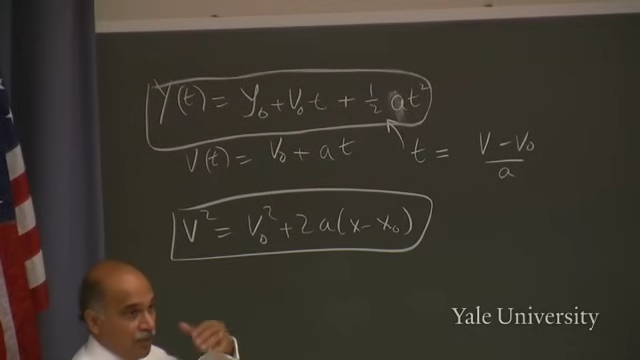 Y(t) = y₀ + v₀ t + ½ a t²
V(t) = V₀ + a t
t = V − V₀ / a
V² = V₀² + 2 a (x − x₀)
Yale University